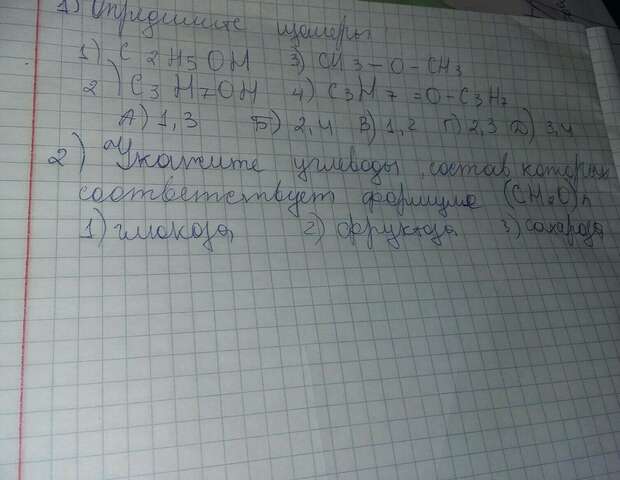 1) Определите изомеры
1) C2H5OH 3) CH3-O-CH3
2) C3H7OH 4) C3H7=O-C3H7
А) 1,3 Б) 2,4 В) 1,2 Г) 2,3 Д) 3,4
2) Укажите углеводы, состав которых
соответствует формуле (CH2O)n
1) глюкоза 2) фруктоза 3) сахароза